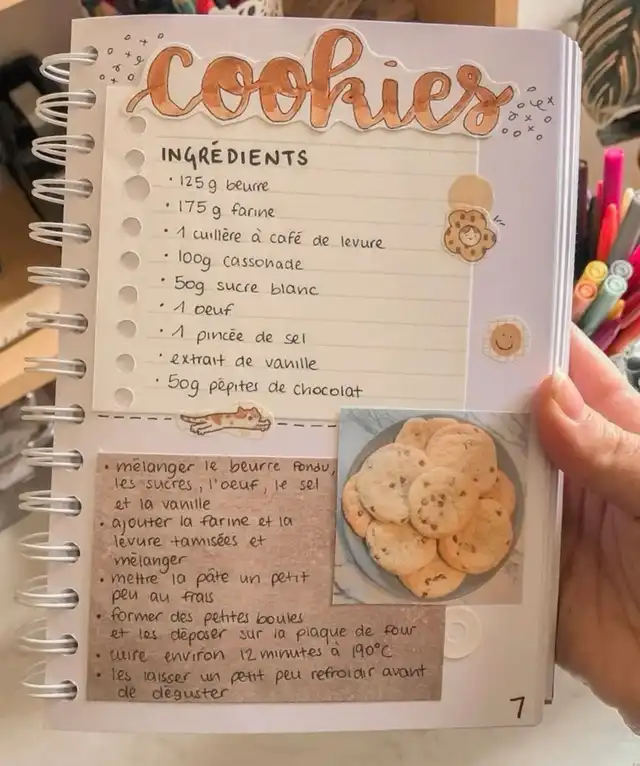 cookies
INGRÉDIENTS
· 125g beurre
· 175 g farine
· 1 cuillère à café de levure
· 100g cassonade
· 50g sucre blanc
· 1 oeuf
· 1 pincée de sel
· extrait de vanille
· 50g pépites de chocolat
• mélanger le beurre fondu,
les sucres, l'oeuf, le sel
et la vanille
• ajouter la farine et la
levure tamisées et
mélanger
• mettre la pâte un petit
peu au frais
• former des petites boules
et les déposer sur la plaque de four
• cuire environ 12 minutes à 190°C
• les laisser un petit peu refroidir avant
de déguster
7